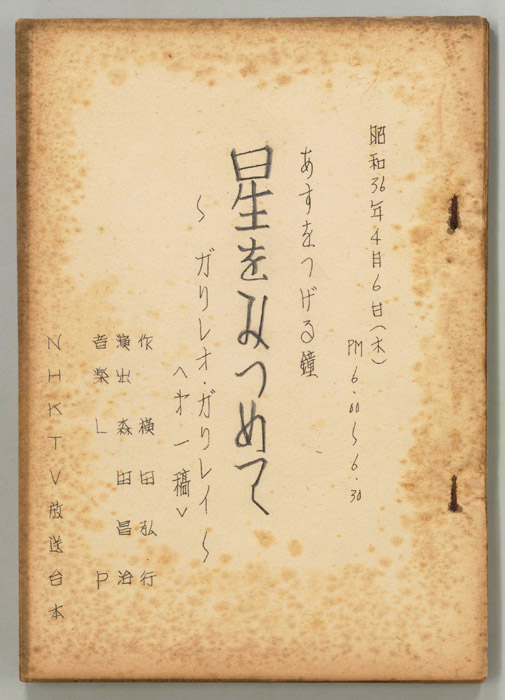 昭和36年4月6日(木)
PM6.00〜6.30
あすをつげる鐘
星をみつめて
〜ガリレオ・ガリレイ〜
<才一稿>
作 横田弘行
演出 森田昌治
音楽 LP
NHKTV放送台本